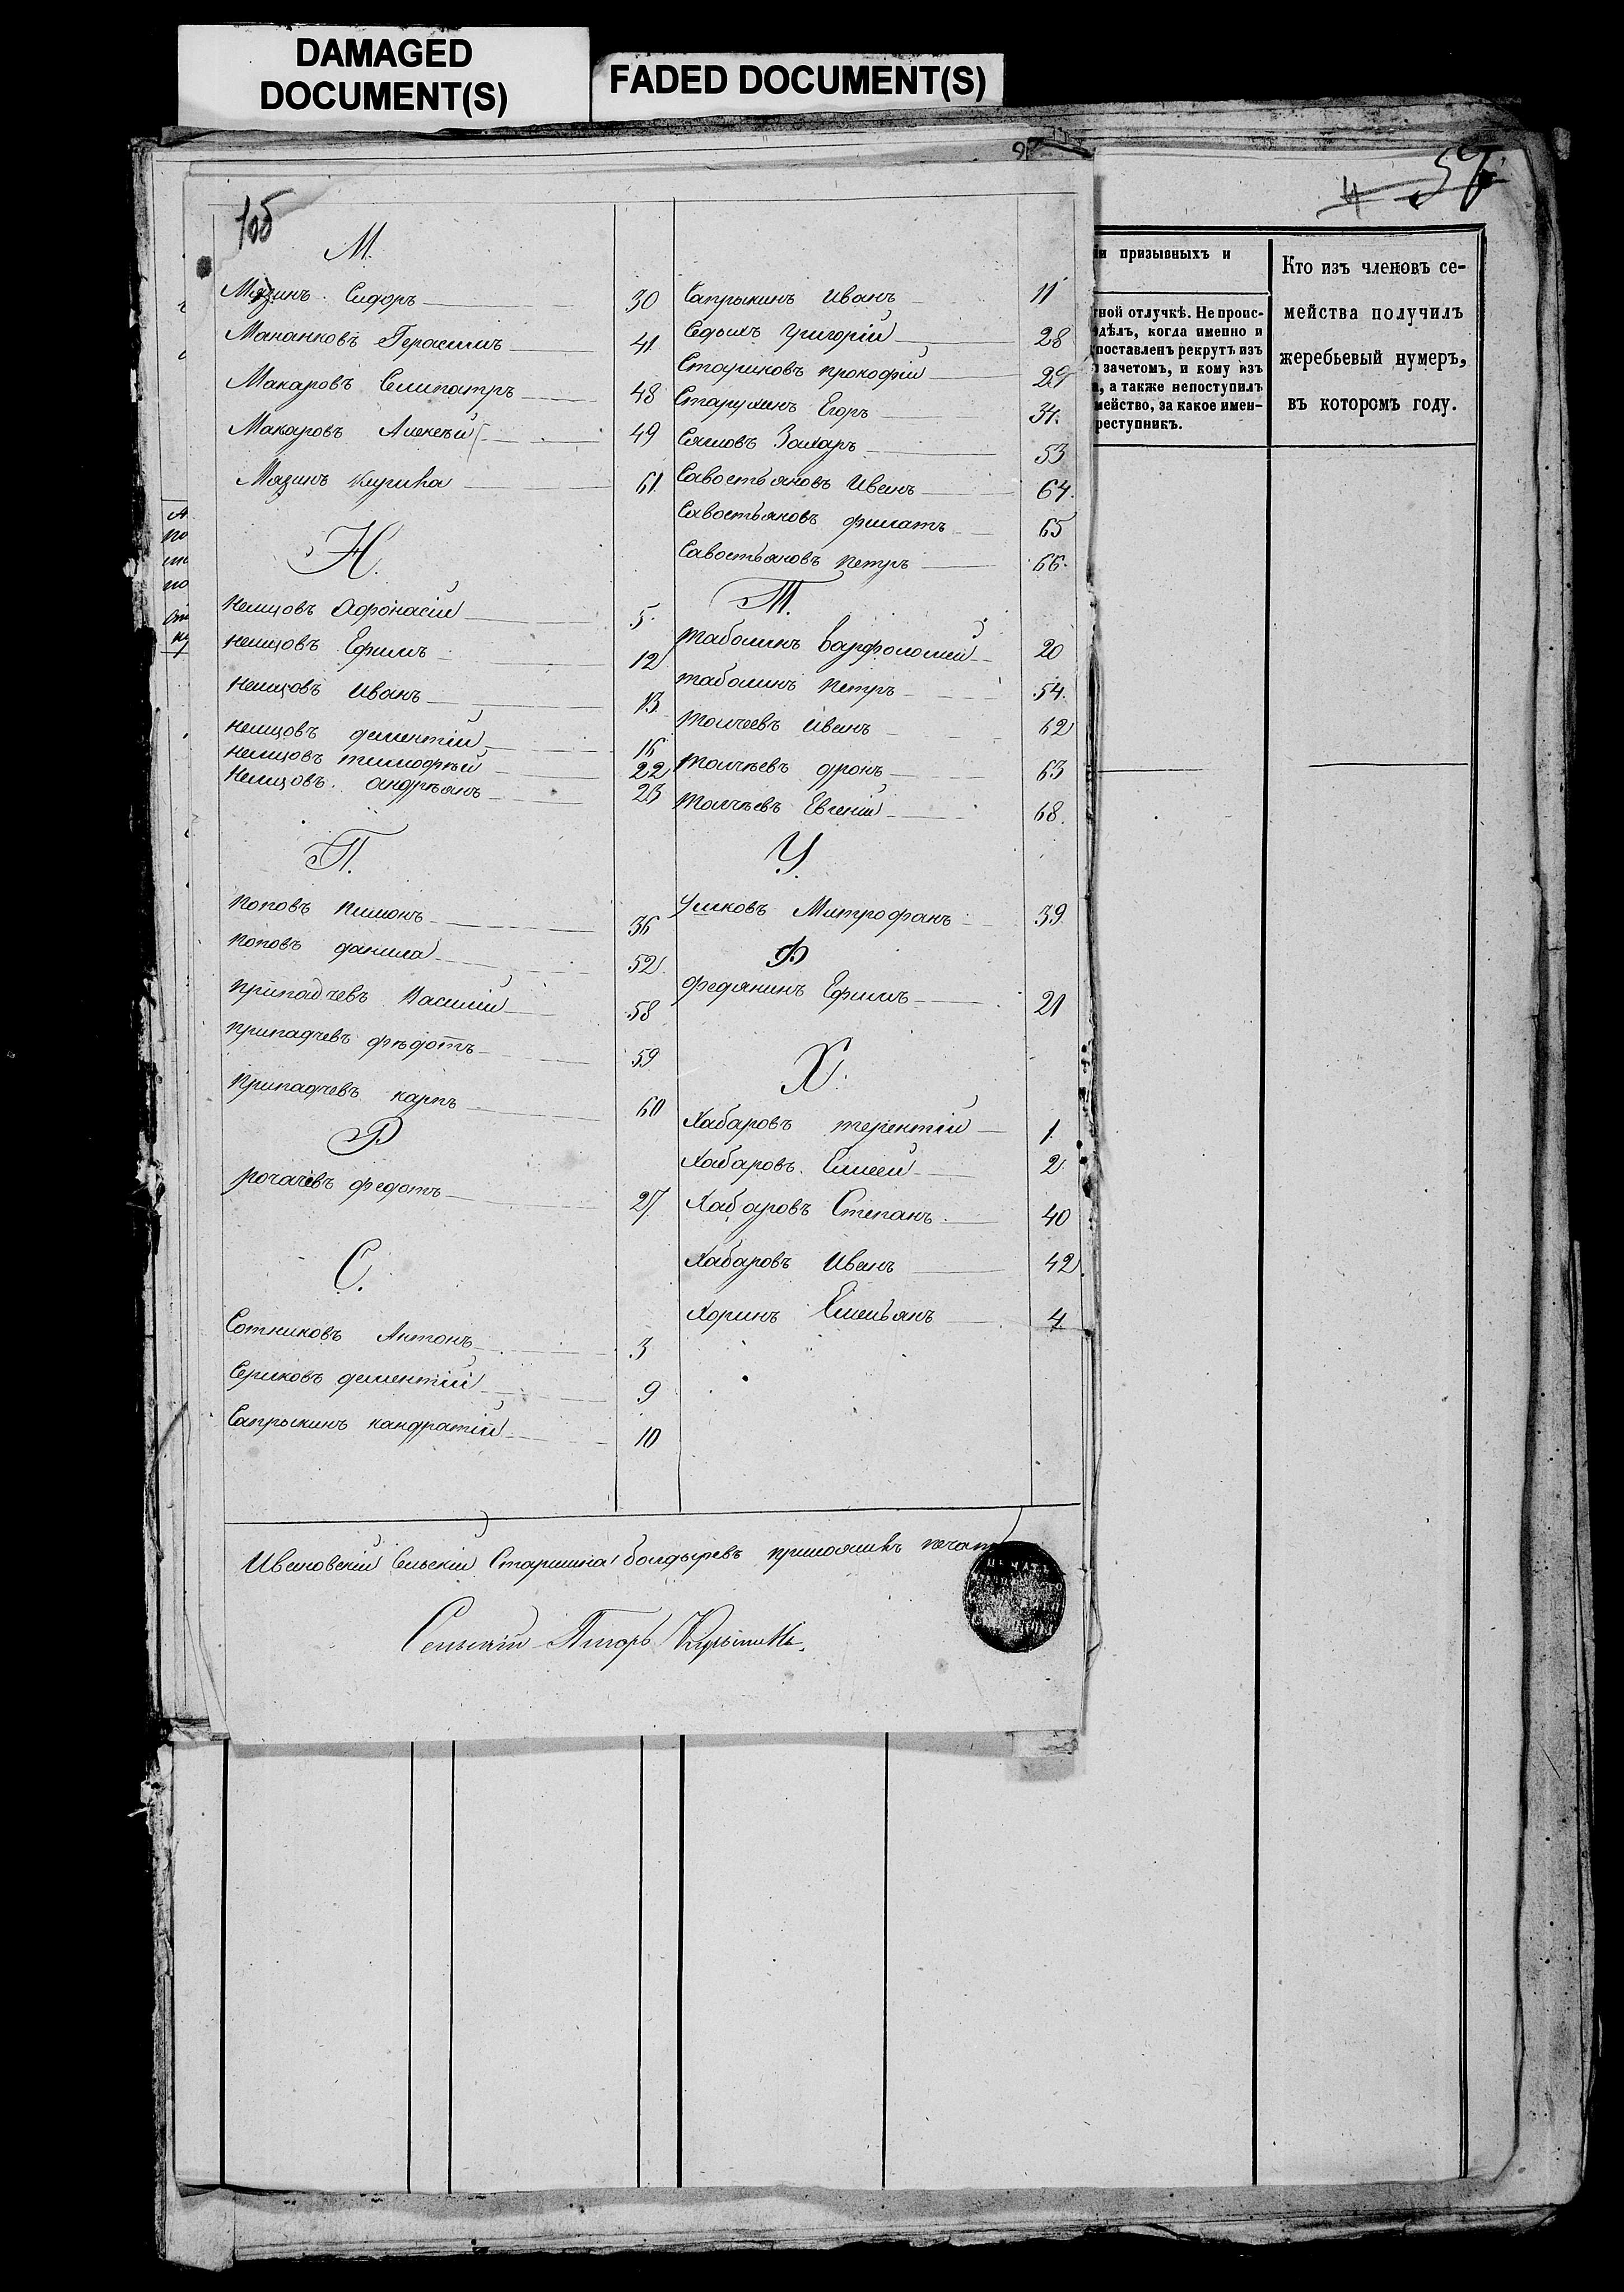 DAMAGED
DOCUMENT(S)
FADED DOCUMENT(S)
4 57
105
М.
Мязинъ Сидоръ 30
Мананковъ Герасимъ 41
Макаровъ Селипатръ 48
Макаровъ Алексѣй 49
Мязинъ 61
Н.
Немцовъ Афонасій 5.
Немцовъ Ефимъ 12
Немцовъ Иванъ 13
Немцовъ дементій 16
Немцовъ тимофѣй 22
Немцовъ андрѣянъ 23
П.
Поповъ Пимонъ 36
Поповъ данила 52
Припадчевъ Василій 58
Припадчевъ фѣдотъ 59
Припадчевъ карпъ 60
Р
Рогачевъ федотъ 27
С.
Сотниковъ Антонъ 3
Сериковъ дементій 9
Сапрыкинъ кандратій 10
Сапрыкинъ Иванъ 11
Седыхъ григорій 28
Стариковъ прокофій 29
Старухинъ Егоръ 34.
Сямовъ Захаръ 53
Савостьяновъ Иванъ 64.
Савостьяновъ филатъ 65
Савостьяновъ Петръ 66.
Т.
таболинъ варфоломей 20
таболинъ Петръ 54.
толчеевъ иванъ 62
толчѣевъ фронъ 63
толчѣевъ Евгеній 68.
У.
Ушковъ Митрофанъ 39
Ф
федянинъ Ефимъ 21
Х.
Хабаровъ терентій 1.
Хабаровъ Елисей 2.
Хабаровъ Степанъ 40
Хабаровъ Иванъ 42
Хоринъ Емельянъ 4
Ивановскій Сельскій Старшина болдыревъ приложилъ печать
Сельскій Писорь
и призывныхъ и
тной отлучкѣ. Не проис-
дѣлъ, когда именно и
поставленъ рекрутъ изъ
зачетомъ, и кому изъ
, а также непоступилъ
мейство, за какое имен-
реступникъ.
Кто изъ членовъ се-
мейства получилъ
жеребьевый нумеръ,
въ которомъ году.